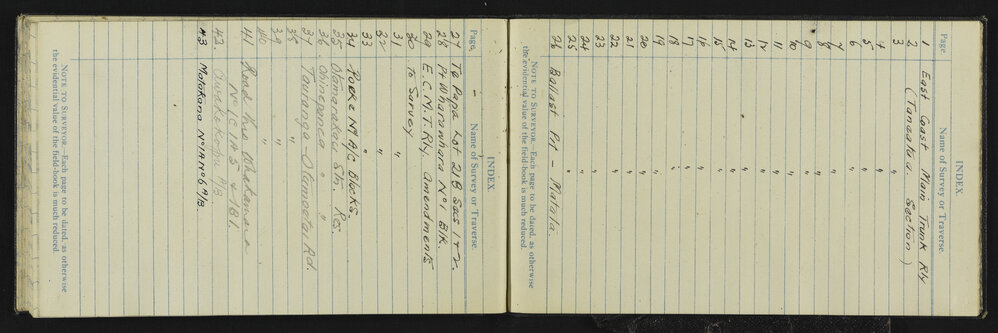 INDEX
Page. Name of Survey or Traverse.
1 East Coast Main Trunk Rly
2 (Taneatua Section)
3 "
4 "
5 "
6 "
7 "
8 "
9 "
10 "
11 "
12 "
13 "
14 "
15 "
16 "
17 "
18 "
19 "
20 "
21 "
22 "
23 "
24 "
25 "
26 Ballast Pit - Matata.
NOTE TO SURVEYOR.—Each page to be dated, as otherwise
the evidential value of the field-book is much reduced.
INDEX
Page. Name of Survey or Traverse.
27 Te Papa Lot 21B Secs 1 & 2.
28 Pt Wharawhara No 1 Blk.
29 E.C.M.T. Rly. Amendments
30 to Survey
31 "
32 "
33 "
34 Poeke No A/C Blocks
35 Otamarakau Stn. Res.
36 Ohinepanea " "
37 Tauranga - Otamoeta Rd.
38 "
39 "
40 "
41 Road thro
No 1C 1A 3 & 1B1.
42.
43 Matakana No 1A No 6 A/B.
NOTE TO SURVEYOR.—Each page to be dated, as otherwise
the evidential value of the field-book is much reduced.